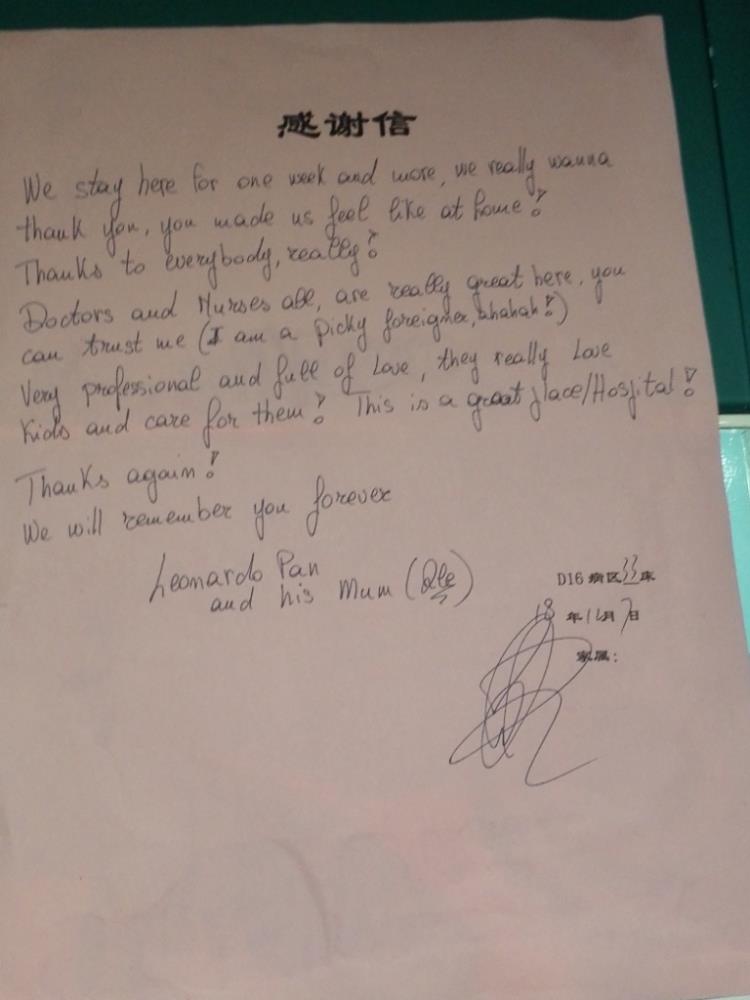 感谢信
We stay here for one week and more, we really wanna
thank you, you made us feel like at home!
Thanks to everybody, really!
Doctors and Nurses all, are really great here, you
can trust me (I am a picky foreigner, ahahah!)
Very professional and full of Love, they really Love
Kids and care for them! This is a great place/Hospital!
Thanks again!
We will remember you forever
Leonardo Pan
and his Mum
D16 病区33床
18年11月7日
家属: